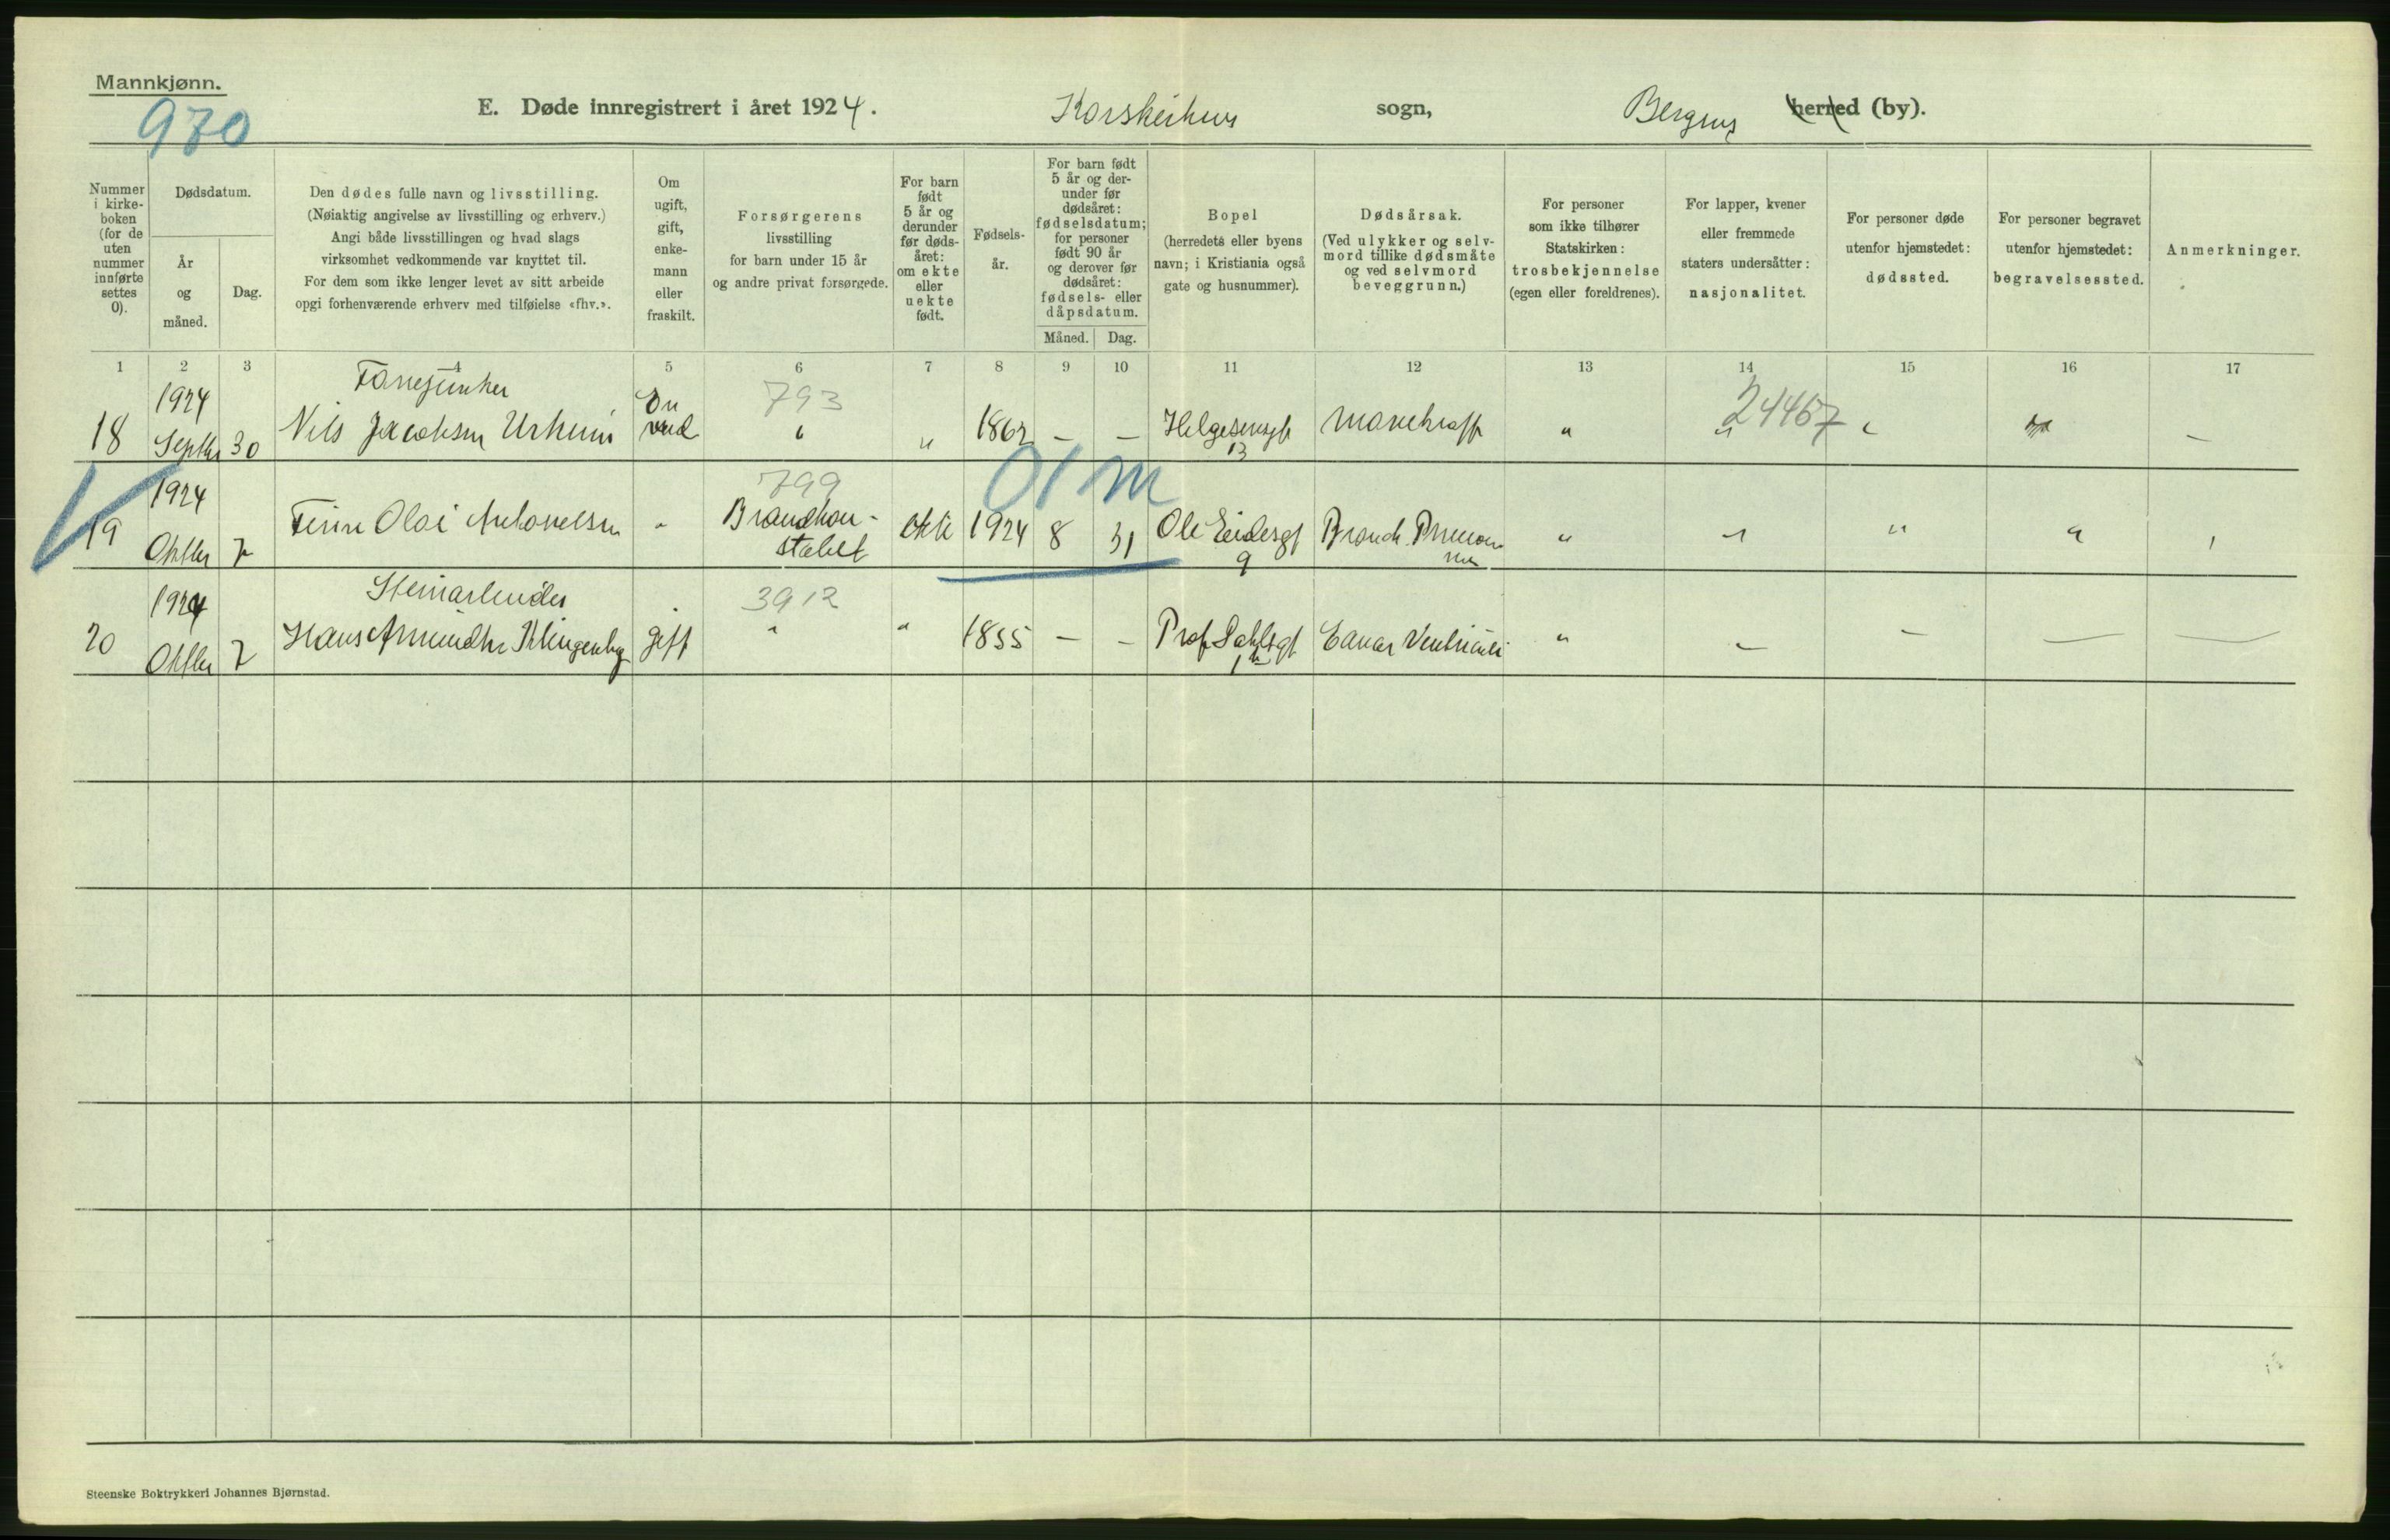 Mannkjønn.
970
E. Døde innregistrert i året 1924. Korskirkens sogn, Bergens herred (by).
Nummer i kirkeboken (for de uten nummer innførte settes 0).
Dødsdatum.
År og måned.
Dag.
Den dødes fulle navn og livsstilling.
(Nøiaktig angivelse av livsstilling og erhverv.)
Angi både livsstillingen og hvad slags
virksomhet vedkommende var knyttet til.
For dem som ikke lenger levet av sitt arbeide
opgi forhenværende erhverv med tilføielse «fhv.».
Om ugift, gift, enkemann eller fraskilt.
Forsørgerens
livsstilling
for barn under 15 år
og andre privat forsørgede.
For barn født 5 år og derunder før dødsåret: om ekte eller uekte født.
Fødselsår.
For barn født 5 år og derunder før dødsåret: fødselsdatum; for personer født 90 år og derover før dødsåret: fødsels- eller dåpsdatum.
Måned. Dag.
Bopel
(herredets eller byens
navn; i Kristiania også
gate og husnummer).
Dødsårsak.
(Ved ulykker og selvmord tillike dødsmåte og ved selvmord beveggrunn.)
For personer
som ikke tilhører
Statskirken:
trosbekjennelse
(egen eller foreldrenes).
For lapper, kvener
eller fremmede
staters undersåtter:
nasjonalitet.
For personer døde
utenfor hjemstedet:
dødssted.
For personer begravet
utenfor hjemstedet:
begravelsessted.
Anmerkninger.
1 2 3 4 5 6 7 8 9 10 11 12 13 14 15 16 17
1924 793 24467
18 Septbr 30 Nils Jacobsen Urheim " " 1862 – – Helgesensgt 13 Mavekraft " " " –
1924 799 01 m
19 Oktbr 7 Olai Antonelsen " Brandkonstabel ekte 1924 8 31 Ole Eidesgt 9 " " " "
1924 Stenarbeider 3912
20 Oktbr 7 Hans Klingenberg gift " " 1855 – – Prof Dahlsgt Cancer Ventriculi " – – – –
Steenske Boktrykkeri Johannes Bjørnstad.